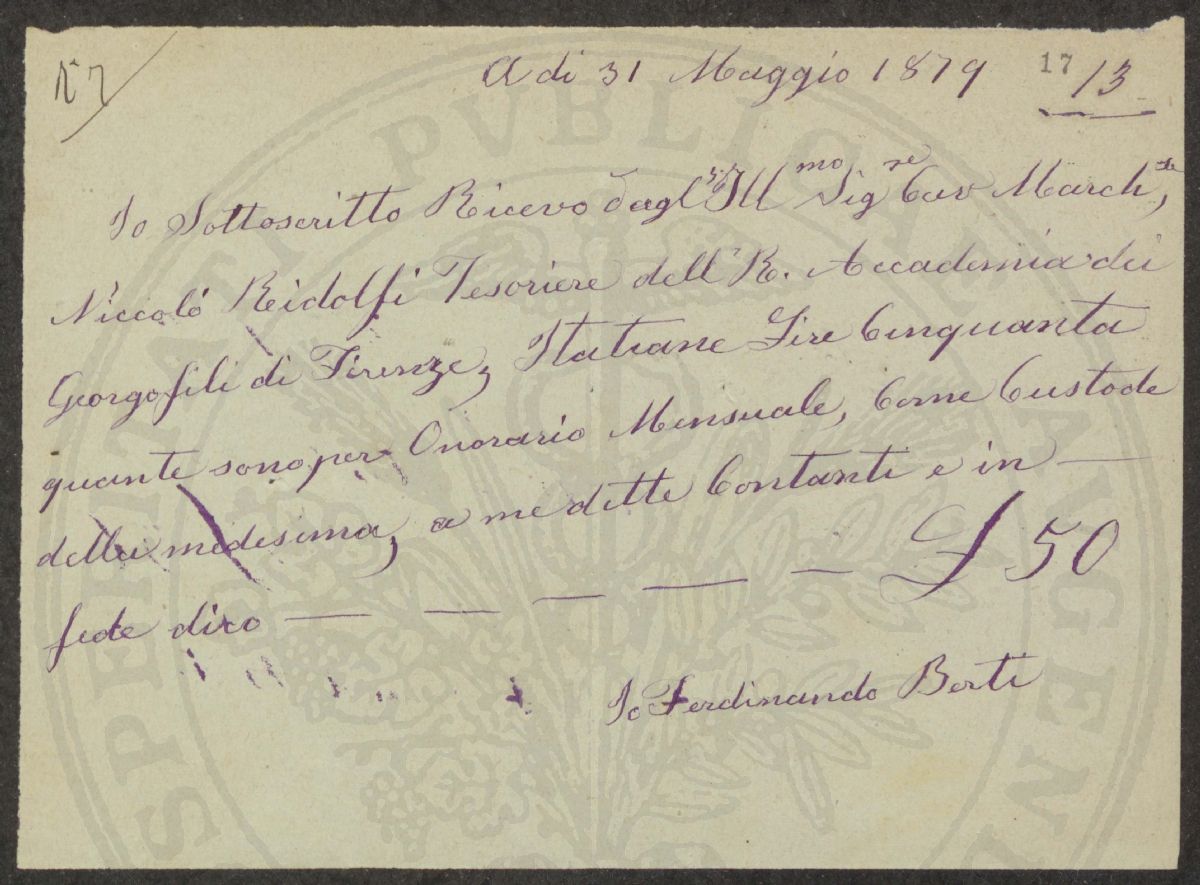 N 7
A di 31 Maggio 1879 17 13
Io Sottoscritto Ricevo dagl Ill mo Sig re Cav March se,
Niccoló Ridolfi Tesoriere dell' R. Accademia dei
Georgofili di Firenze, Italiane Lire Cinquanta
quante sono per Onorario Mensuale, Come Custode
della medesima, a me dette Contanti e in —
fede dico — — — — — £ 50
Io Ferdinando Berti
PVBLICAE
SPERITATI
AVGENDAE